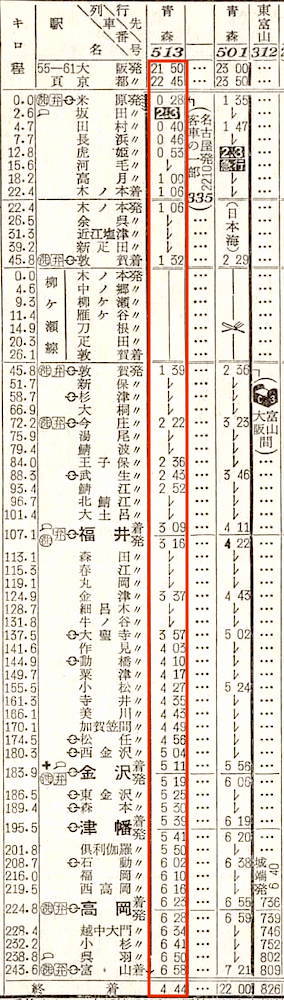 キロ程 駅名 列車番号 行先 青森 青森 東富山
513 501 312
55—61頁 大阪発 21 50 … 23 00 …
京都〃 22 45 … 23 50 …
0.0 米原発 0 28 … 1 35 …
2.6 坂田〃 2・3 …
4.7 田村〃 0 40 … 1 47 …
7.7 長浜〃 0 46 …
12.8 虎姫〃 0 53 2・3 …
15.6 河毛〃 急行 …
18.2 高月〃 1 00 …
22.4 木ノ本着 1 06 …
名古屋発2210 客車の一部 335
22.4 木ノ本発 1 06 …
26.5 余呉〃 …
31.3 近江塩津〃 (日本海) …
39.2 新疋田〃 …
45.8 敦賀着 1 32 … 2 29 …
柳ヶ瀬線
0.0 木ノ本発 …
4.6 中ノ郷〃 …
9.3 柳ヶ瀬〃 …
11.4 雁ヶ谷〃 …
14.9 刀根〃 …
20.3 疋田〃 …
26.1 敦賀着 …
45.8 敦賀発 1 39 … 2 36
51.7 新保〃 …
58.7 杉津〃 …
66.9 大桐〃 …
72.2 今庄〃 2 22 … 3 23
大阪富山間
75.9 湯尾〃 …
79.4 鯖波〃 …
84.0 王子保〃 2 36 …
88.3 武生〃 2 43 … 3 46
93.4 鯖江〃 2 52 …
96.7 北鯖江〃 …
101.4 大土呂〃 …
107.1 福井着 3 09 … 4 11 …
発 3 16 … 4 22 …
113.1 森田〃 …
115.3 春江〃 …
119.1 丸岡〃 …
124.9 金津〃 3 37 … 4 43 …
128.7 細呂木〃 …
131.8 牛ノ谷〃 …
137.5 大聖寺〃 3 57 … 5 02 …
141.6 作見〃 4 03 …
144.9 動橋〃 4 10 …
149.7 粟津〃 4 17 …
155.5 小松〃 4 27 … 5 24 …
161.3 寺井〃 4 35 …
166.1 美川〃 4 43 …
170.1 加賀笠間〃 4 49 …
174.5 松任〃 4 56 …
180.3 西金沢〃 5 04 …
183.9 金沢着 5 11 … 5 56 …
発 5 19 … 6 06 …
186.5 東金沢〃 5 25 …
189.4 森本〃 5 30 …
195.5 津幡着 5 39 … 6 19 …
発 5 41 … 6 20 …
201.8 倶利伽羅〃 5 50 …
208.7 石動〃 6 02 … 6 38
216.0 福岡〃 6 10 …
219.5 西高岡〃 6 16 …
城端発 6 40
224.8 高岡着 6 23 … 6 55 736
発 6 28 … 6 59 739
228.4 越中大門〃 6 34 … 746
232.2 小杉〃 6 41 … 752
238.8 呉羽〃 6 50 … 802
243.6 富山着 6 58 … 7 21 809
終着 4 44 … 22 00 826